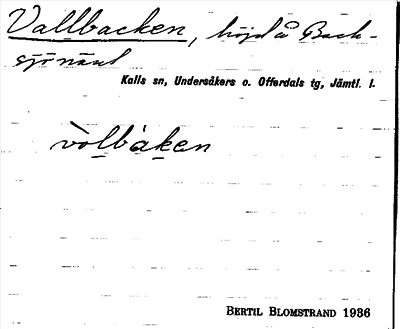 Vallbacken, höjd å Back-
sjönäset
Kalls sn, Undersåkers o. Offerdals tg, Jämtl. l.
vòlbàken
BERTIL BLOMSTRAND 1936